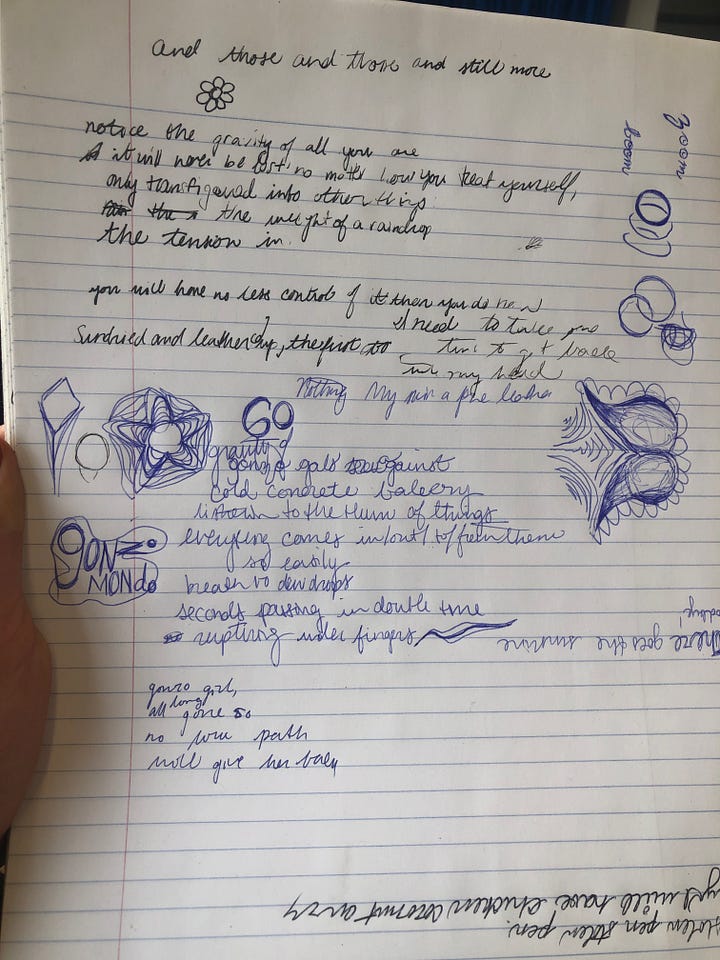 and those and those and still more
notice the gravity of all you are
it will never be lost no matter how you treat yourself,
only transfigured into other things
the weight of a raindrop
the tension in.
you will have no less control of it then you do now
I need to take some
time to get back
into my head
Sundried and leathery, the fruit
Nothing
GO
gravity
gonzo gals against
cold concrete balcony
listen to the hum of things
everything comes in/out to/from them
so easily
breath to dewdrops
seconds passing in double time
rupturing under fingers
GONZO
MONDO
gonzo girl,
all long gone so
no path
will give her back
zoom
zoom
There goes the sunshine
goodbye!
stolen pen stolen pen.
will have chicken coconut curry